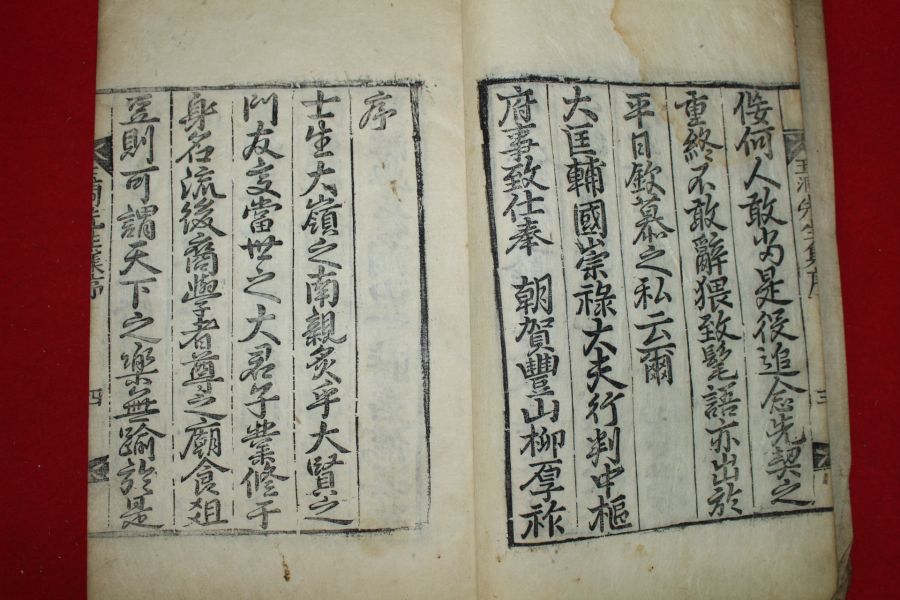 侫何人敢當是役追念先契之
重終不敢辭猥致髦語亦出於
平日欽慕之私云爾
大匡輔國崇祿大夫行判中樞
府事致仕奉 朝賀豐山柳厚祚
序
士生大嶺之南親炙乎大賢之
門友交當世之大君子業修于
身名流後裔學者尊之廟食俎
豆則可謂天下之樂無踰於是
三
四